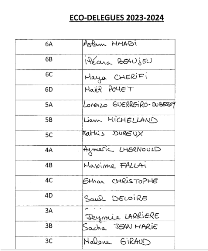 ECO-DELEGUES 2023-2024
6A MHADI
6B BEAUJEU
6C Maya CHERIFI
6D Maël POMET
5A Lorenzo GUERREIRO-
5B Liam MICHELLAND
5C Mathis DUREUX
4A Aymeric LHERNOULD
4B Maxime FALLAI
4C Ethan CHRISTOPHE
4D Saul DELOIRE
3A Jeymie LARRIERE
3B Sacha JEAN MARIE
3C GIRAUD